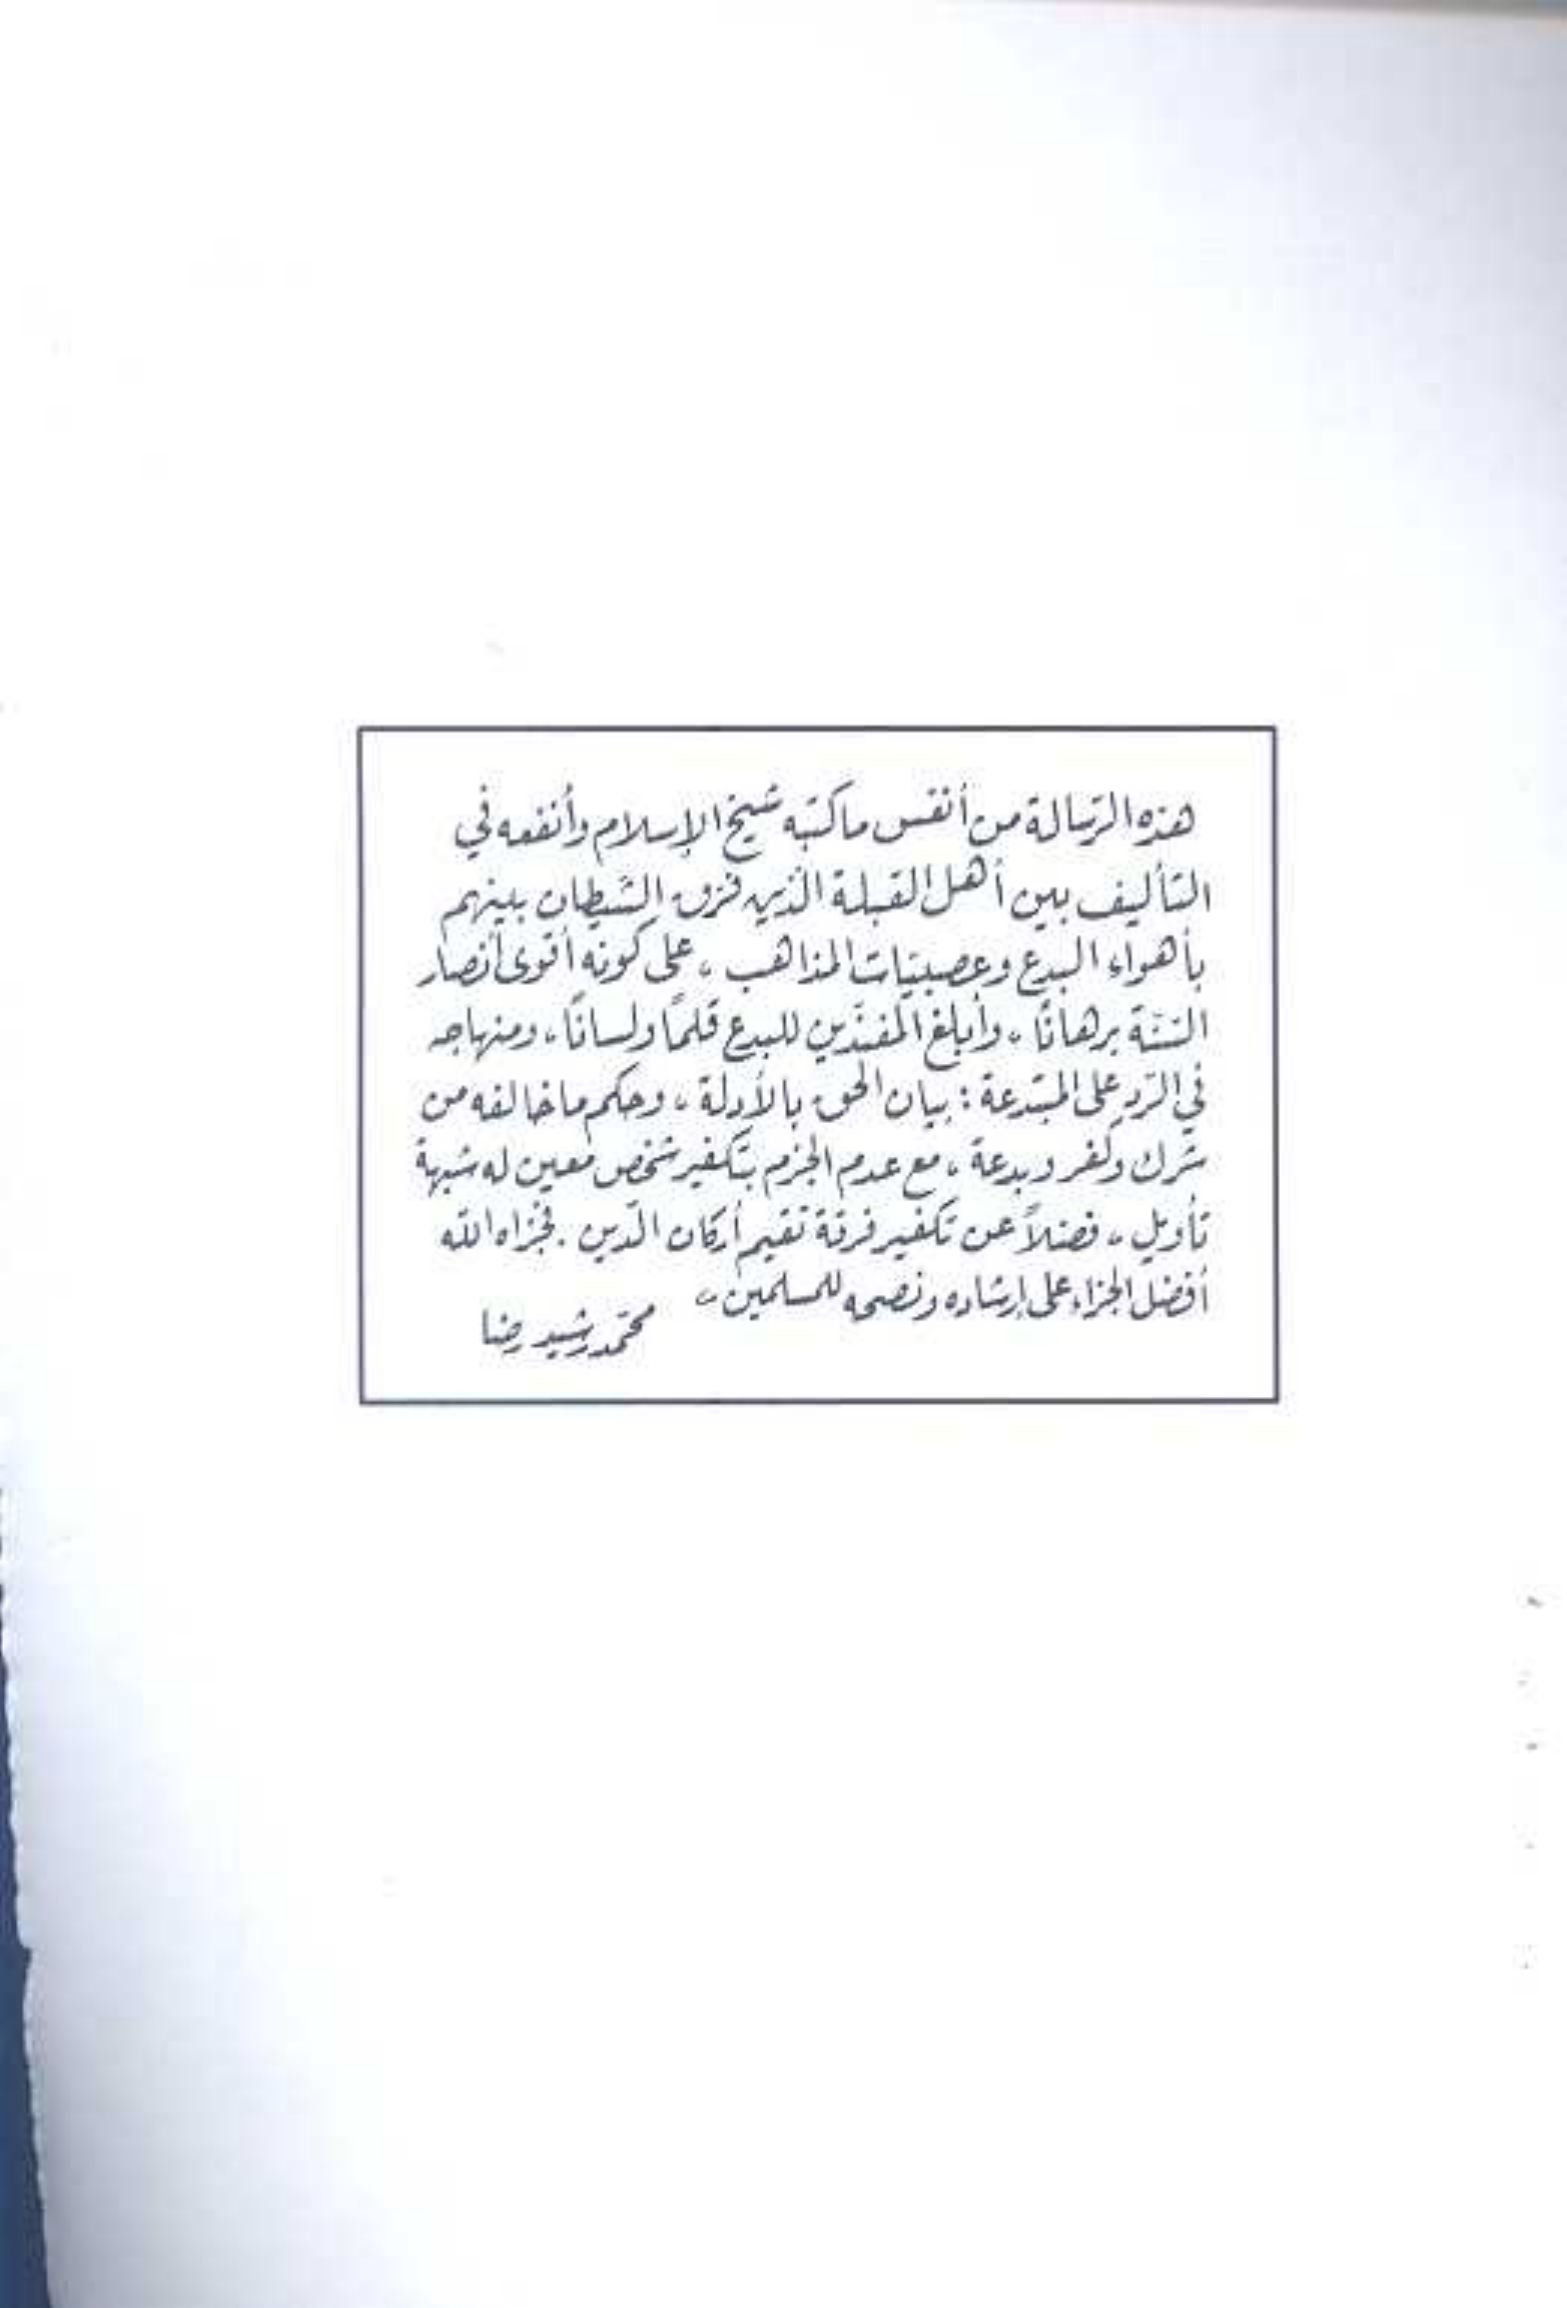 هذه الرّسالة من أنفس ما كتبه شيخ الإسلام وأنفعه في
التأليف بين أهل القبلة الّذين فرّق الشّيطان بينهم
بأهواء البدع وعصبيّات المذاهب، على كونه أقوى أنصار
السّنّة برهانًا، وأبلغ المفنّدين للبدع قلمًا ولسانًا، ومنهاجه
في الرّد على المبتدعة: بيان الحق بالأدلة، وحكم ما خالفه من
شرك وكفر وبدعة، مع عدم الجزم بتكفير شخص معين له شبهة
تأويل، فضلاً عن تكفير فرقة تقيم أركان الدّين. فجزاه الله
أفضل الجزاء على إرشاده ونصحه للمسلمين،
محمّد رشيد رضا